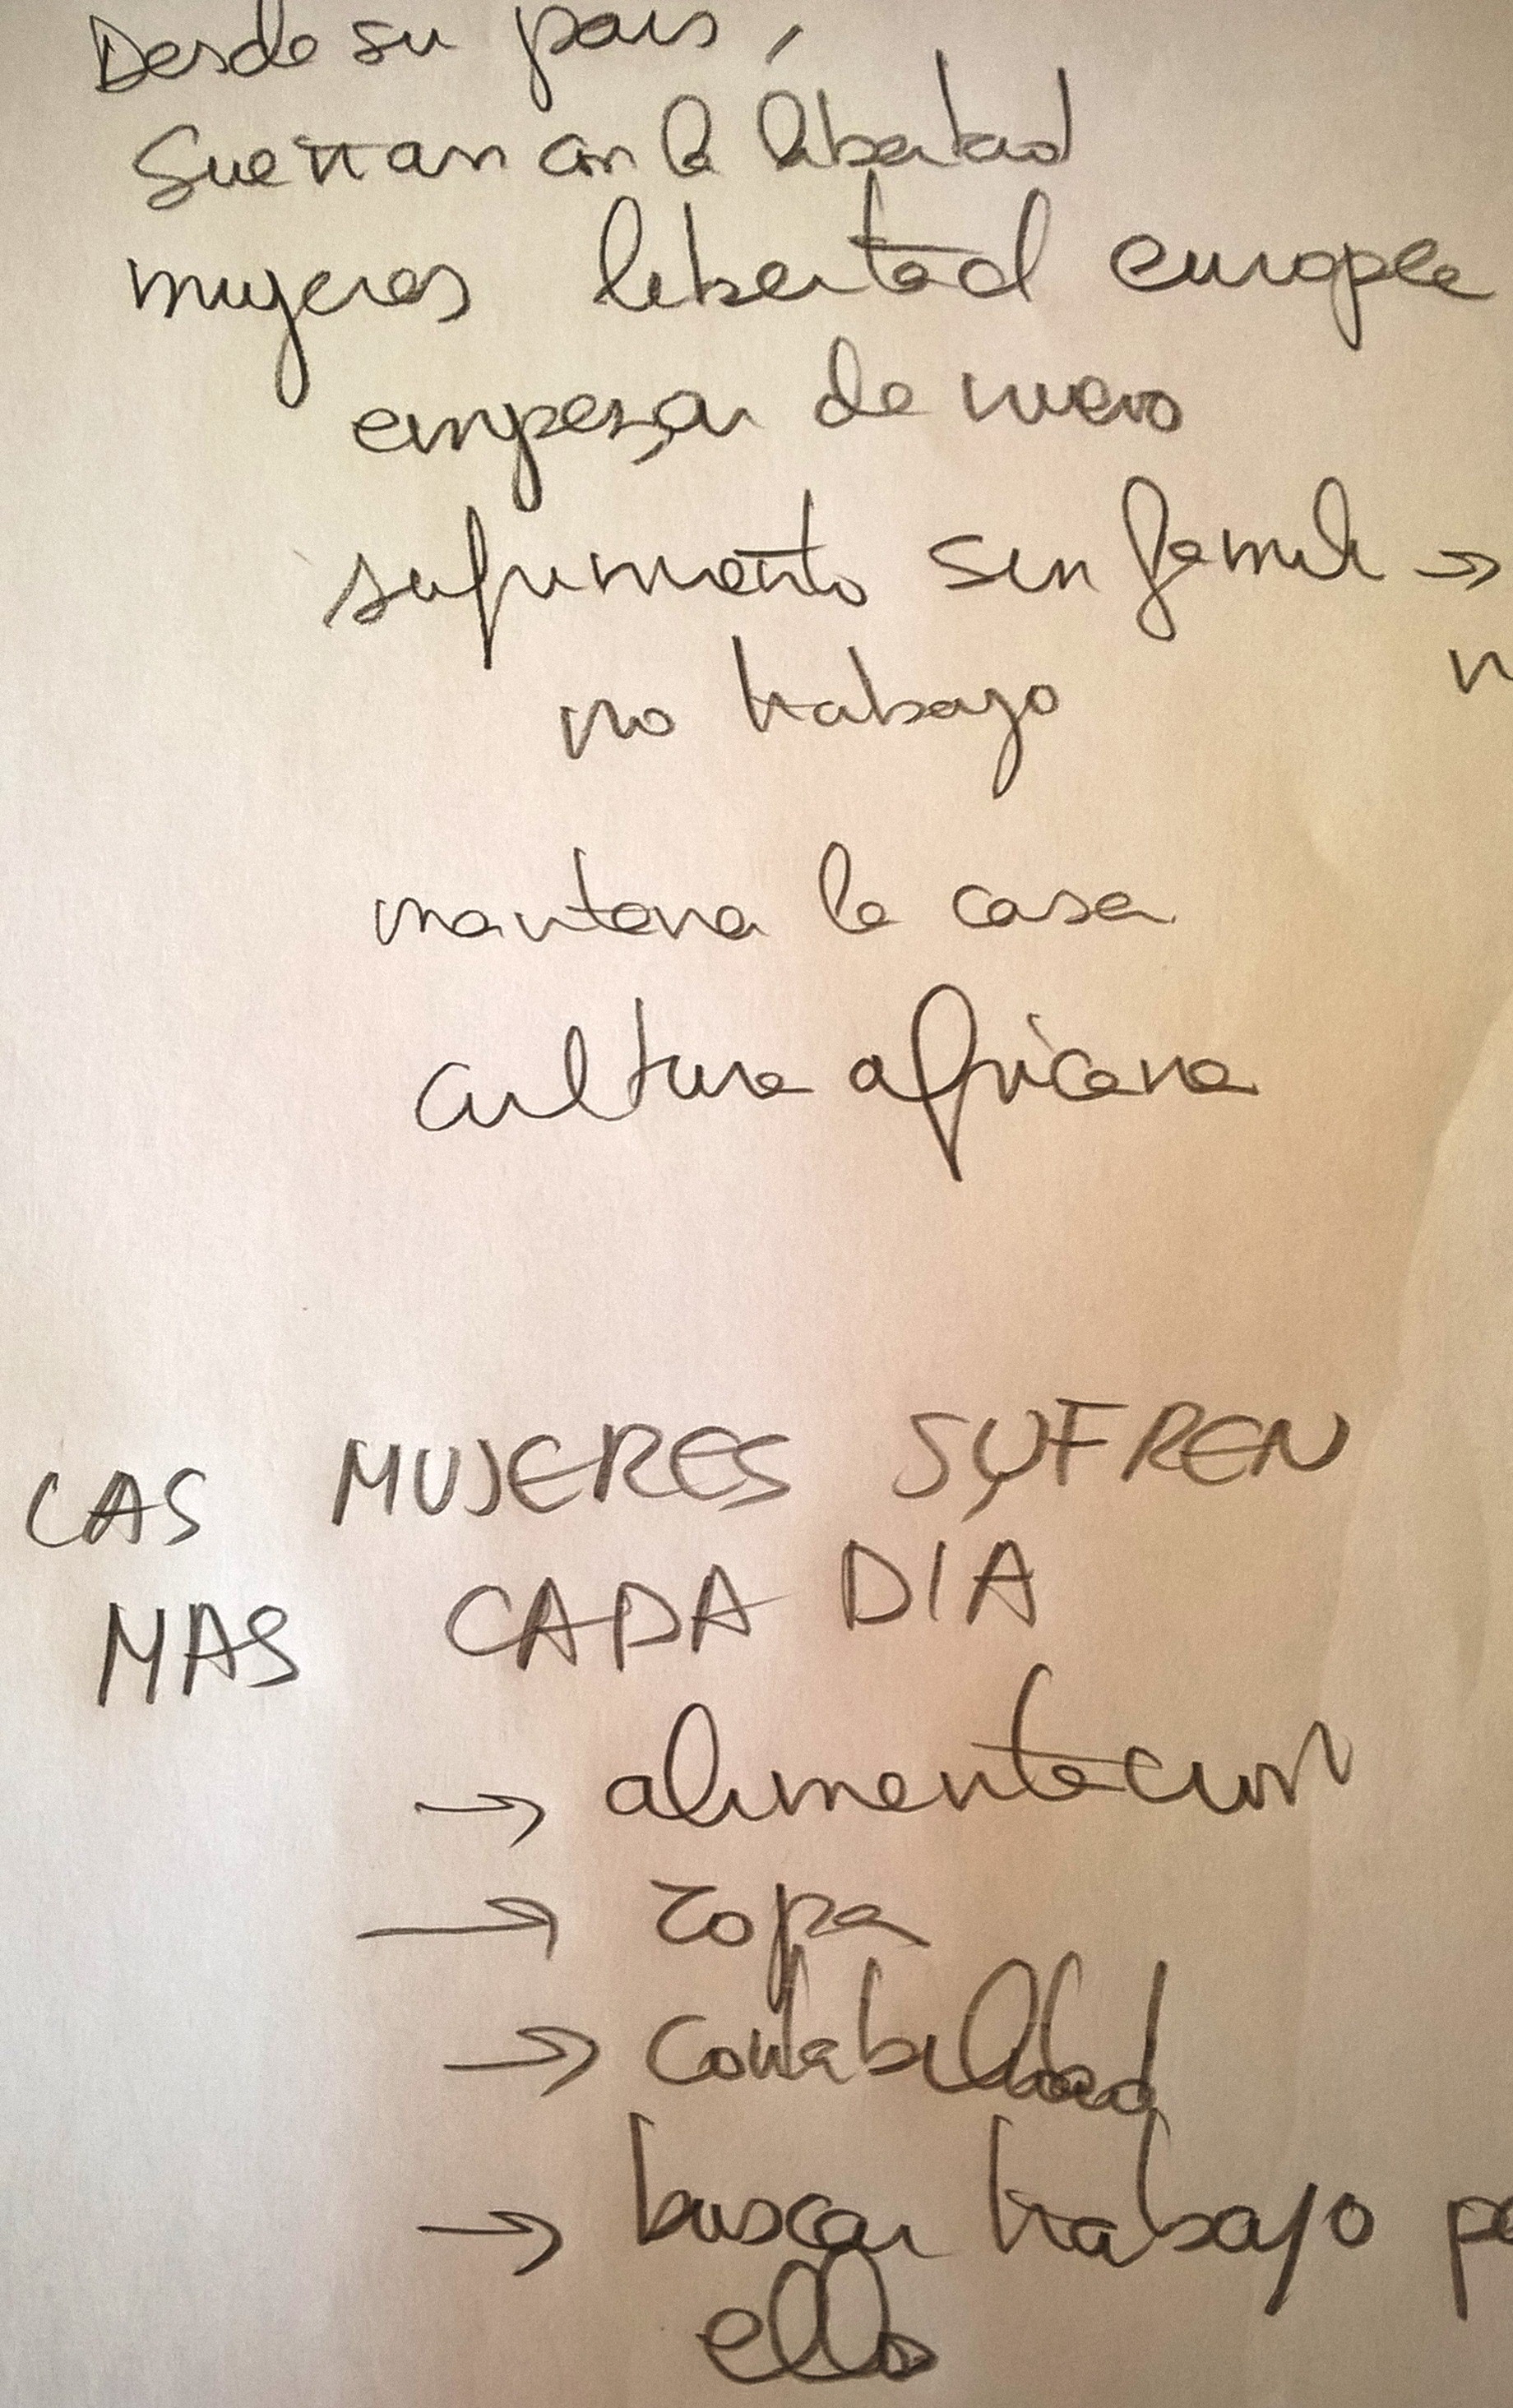 Desde su pais,
Sueñan con la libertad
mujeres libertad europea
empezar de nuevo
sufrimiento sin famili →
no trabajo n
mantena la casa
cultura africana
LAS MUJERES SUFREN
MAS CADA DIA
→ alimentacion
→ ropa
→ contabilidad
→ buscar trabajo pa
ello